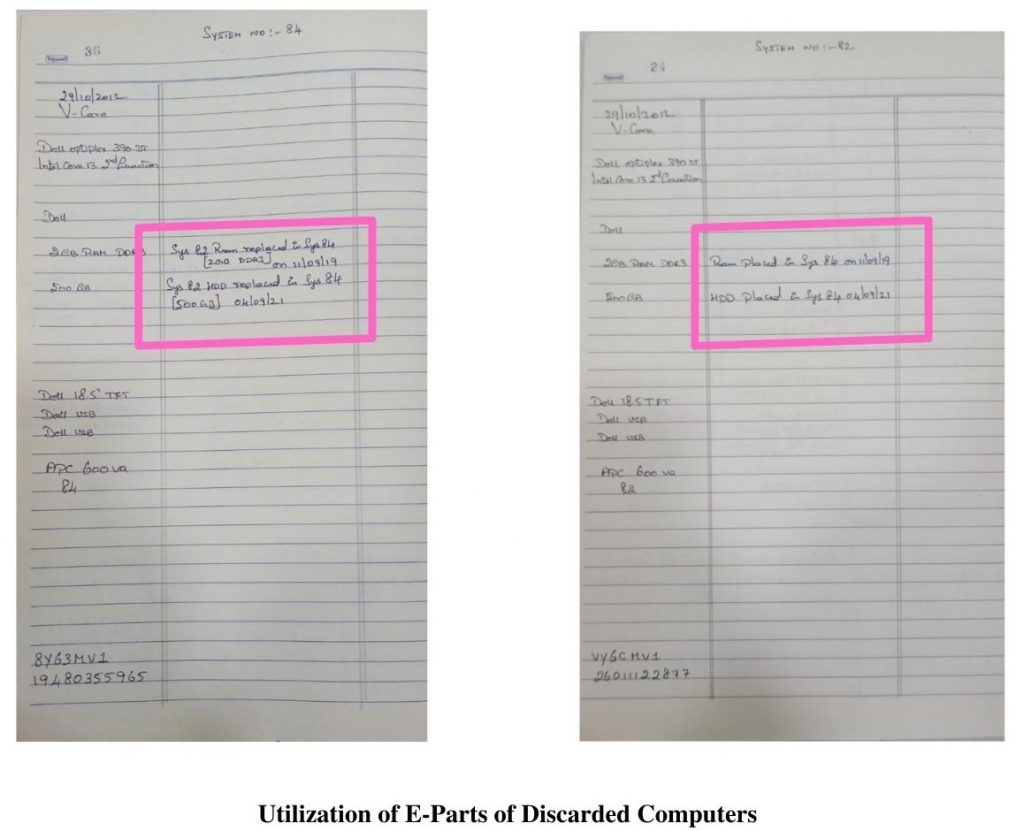 SYSTEM NO :- 84
35
29/10/2012
V-Care
Dell optiplex 390 DT
Intel Core i3 2nd
Dell
2GB RAM DDR3
Sys 82 Ram replaced in Sys 84
on 11/09/19
500 GB
Sys 82 HDD replaced in Sys 84
[500GB] 04/09/21
Dell 18.5" TFT
Dell USB
Dell USB
APC 600 va
84
8Y63MV1
19480355965
SYSTEM NO :- 82
29/10/2012
V-Care
Dell optiplex 390 DT
Intel Core i3 2nd
Dell
2GB RAM DDR3
Ram Placed in Sys 84 on 11/09/19
500GB
HDD Placed in Sys 84 04/09/21
Dell 18.5 TFT
Dell USB
Dell USB
APC 600 va
82
VY6CMV1
26011122877
Utilization of E-Parts of Discarded Computers